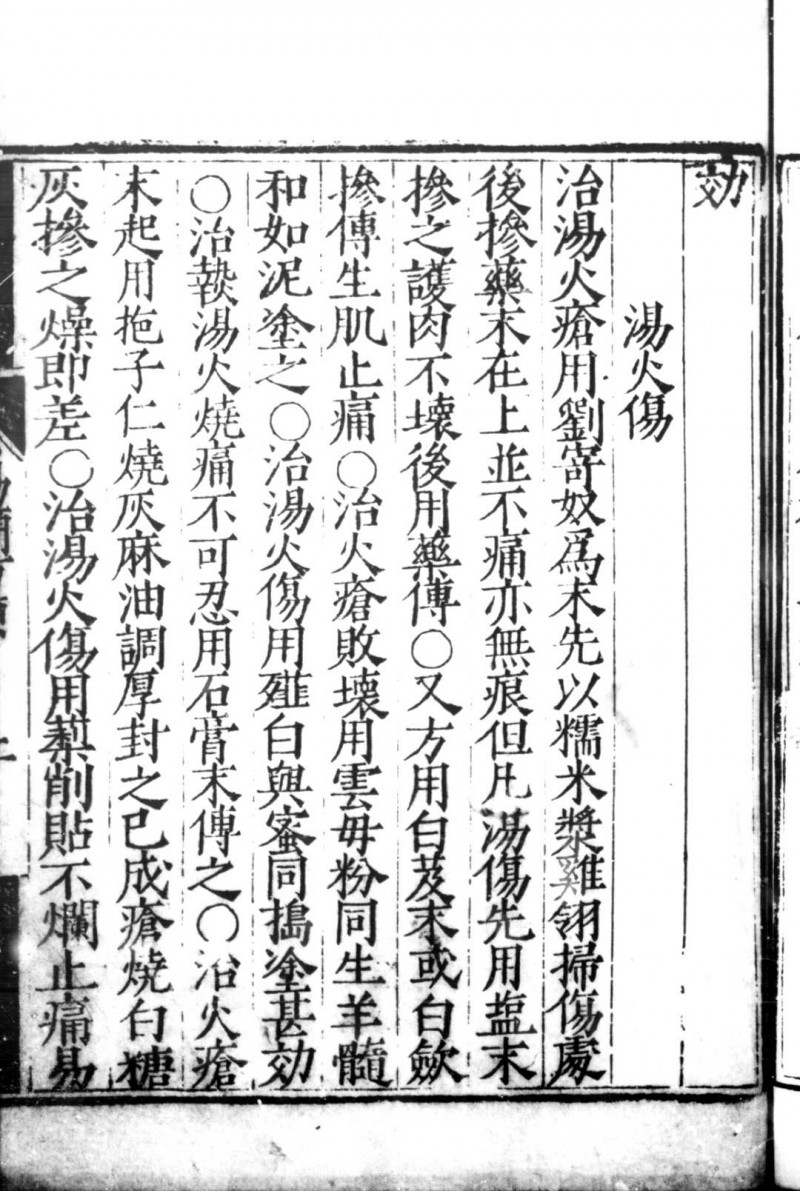 効
湯火傷
治湯火瘡用劉寄奴為末先以糯米漿雞翎掃傷處
後摻藥末在上並不痛亦無痕但凡湯傷先用塩末
摻之護肉不壞後用藥傅○又方用白芨末或白歛
摻傅生肌止痛○治火瘡敗壞用雲母粉同生羊髓
和如泥塗之○治湯火傷用薤白與蜜同搗塗甚効
○治熱湯火燒痛不可忍用石膏末傅之○治火瘡
末起用梔子仁燒灰麻油調厚封之已成瘡燒白糖
灰摻之燥即差○治湯火傷用蔾削貼不爛止痛易